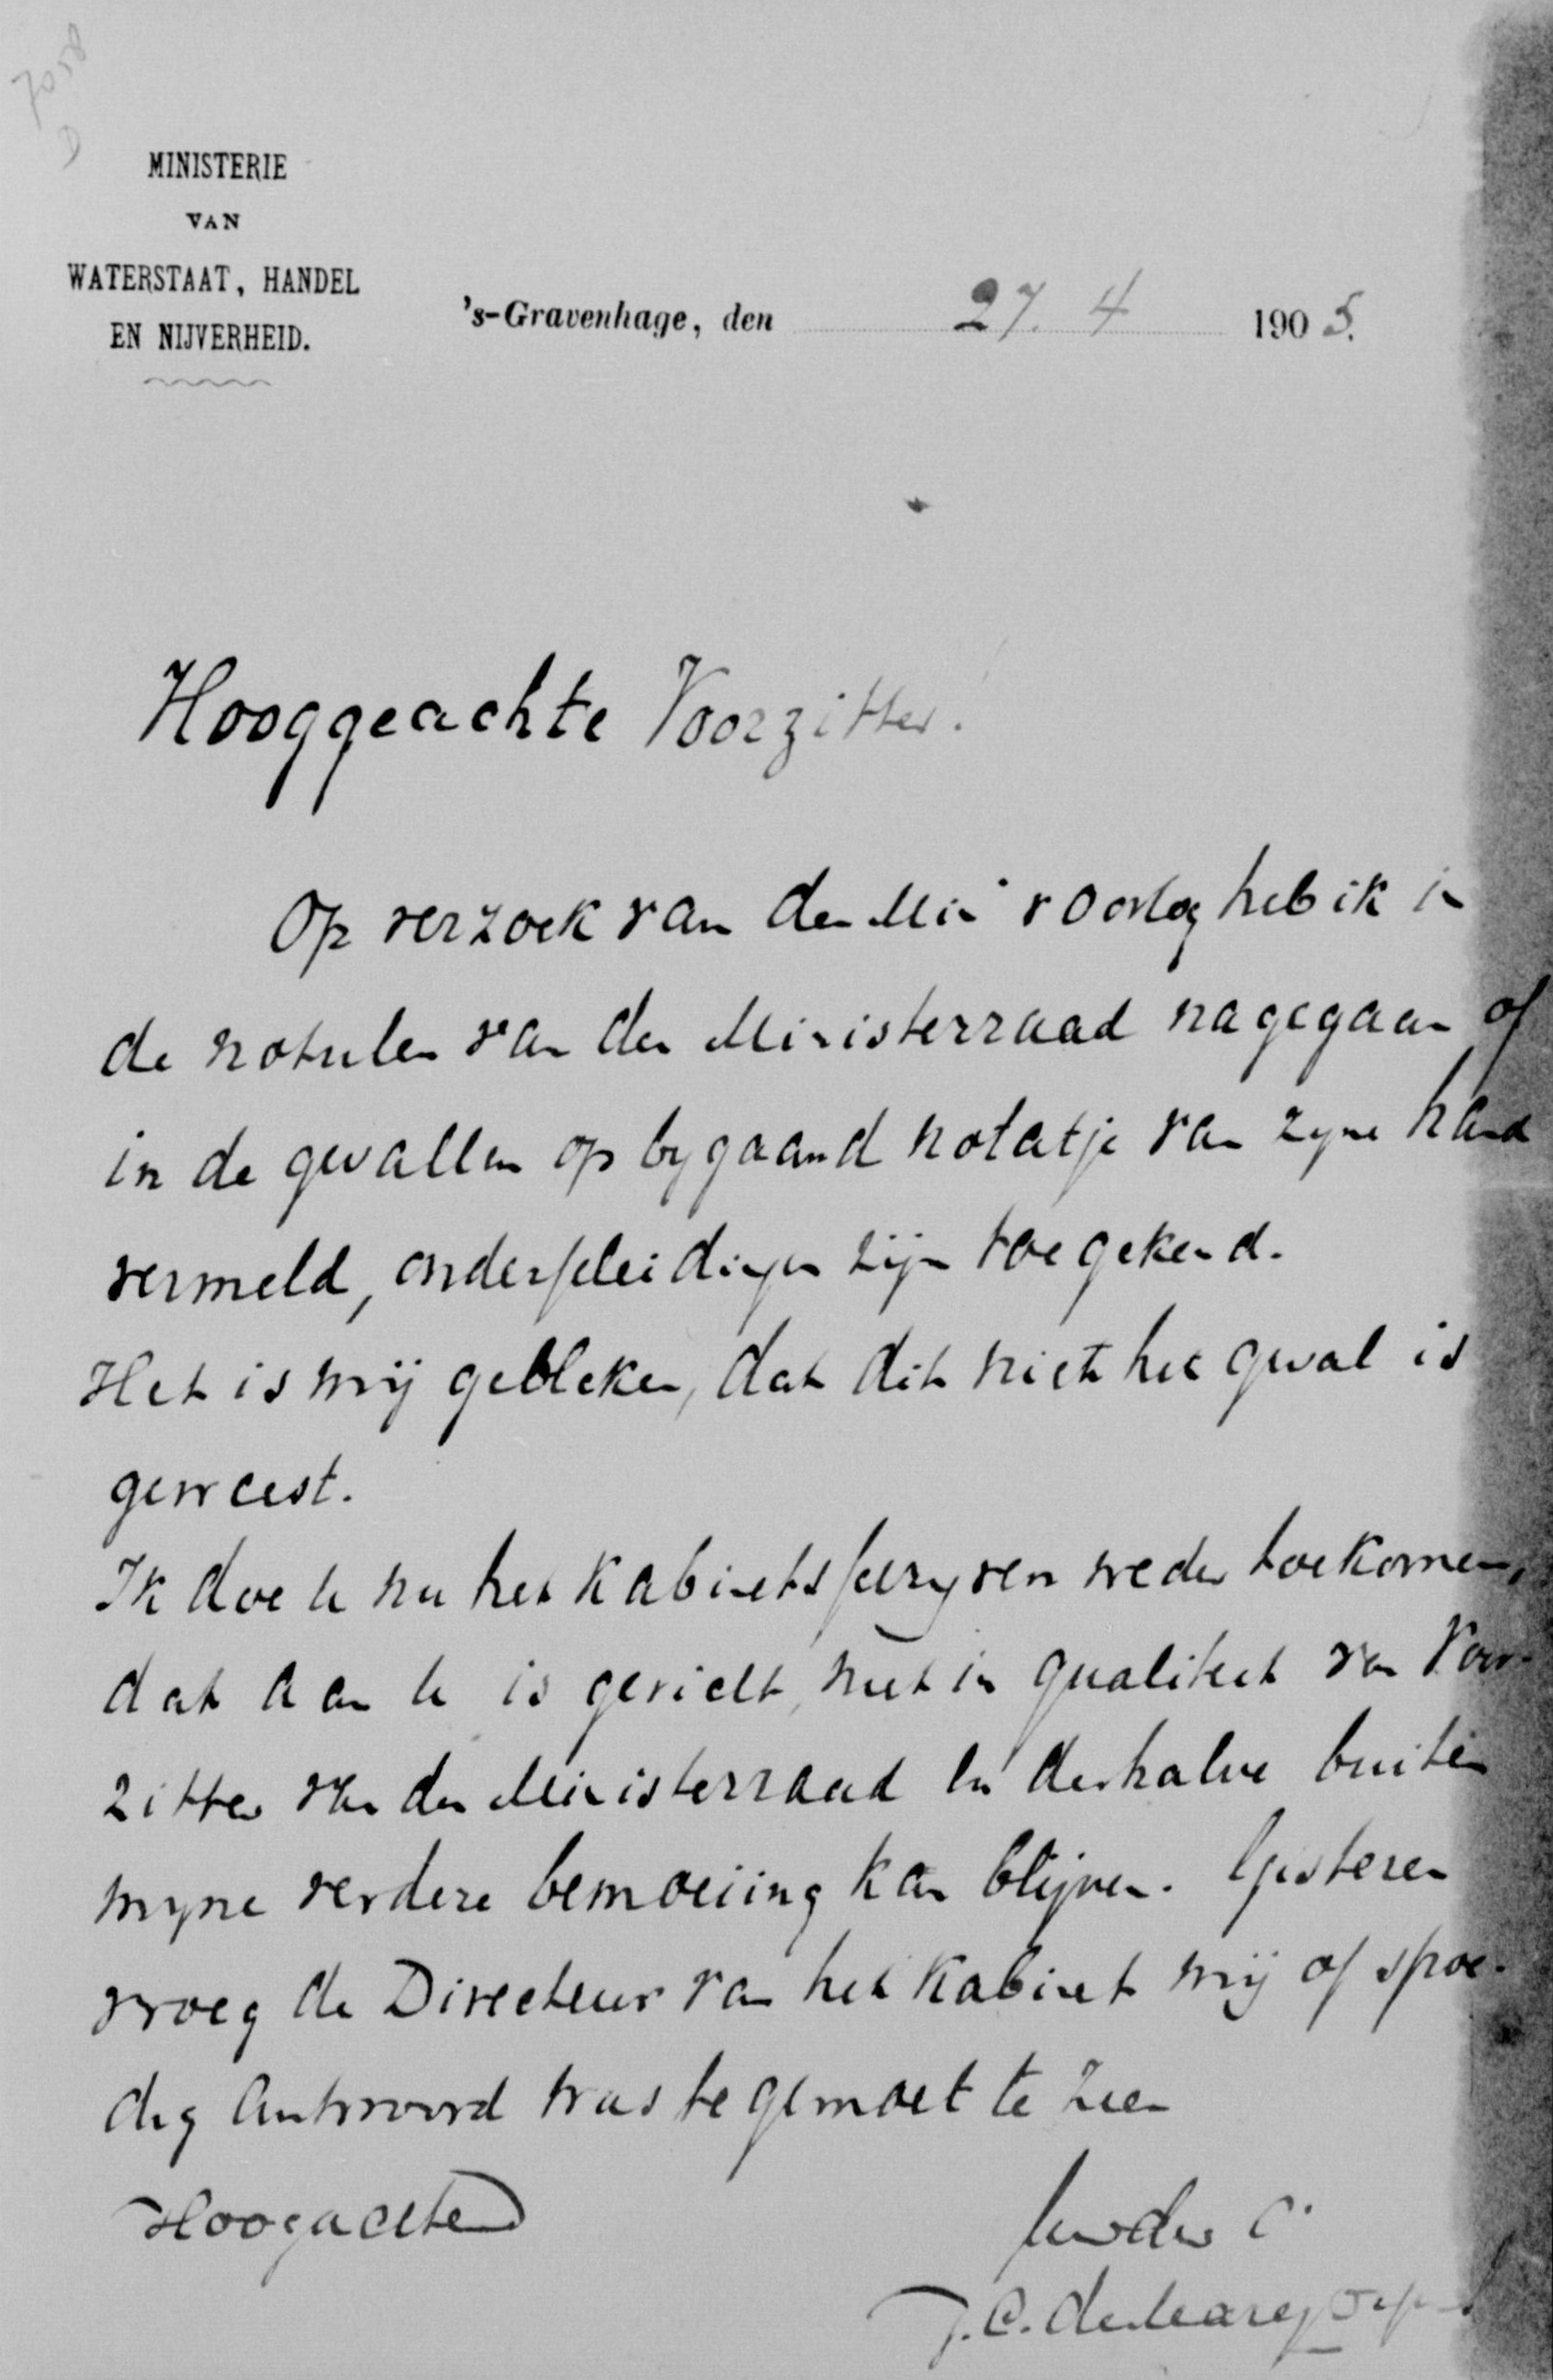 7058
D
MINISTERIE
VAN
WATERSTAAT, HANDEL
EN NIJVERHEID.
's-Gravenhage, den 27. 4 1905.
Hooggeachte Voorzitter!
Op verzoek van den Min v Oorlog heb ik in
de notulen van den Ministerraad nagegaan of
in de gevallen op bygaand notatje van zyne hand
vermeld, onderscheidingen zijn toegekend.
Het is mij gebleken, dat dit niet het geval is
geweest.
Ik doe U nu het Kabinetsschryven weder toekomen,
dat aan U is gericht, niet in qualiteit van Voor-
zitter van den Ministerraad en derhalve buiten
myne verdere bemoeiing kan blijven. Gisteren
vroeg de Directeur van het Kabinet mij of spoe-
dig antwoord was te gemoet te zien
Hoogachtend
J. C. de Marez Oyens